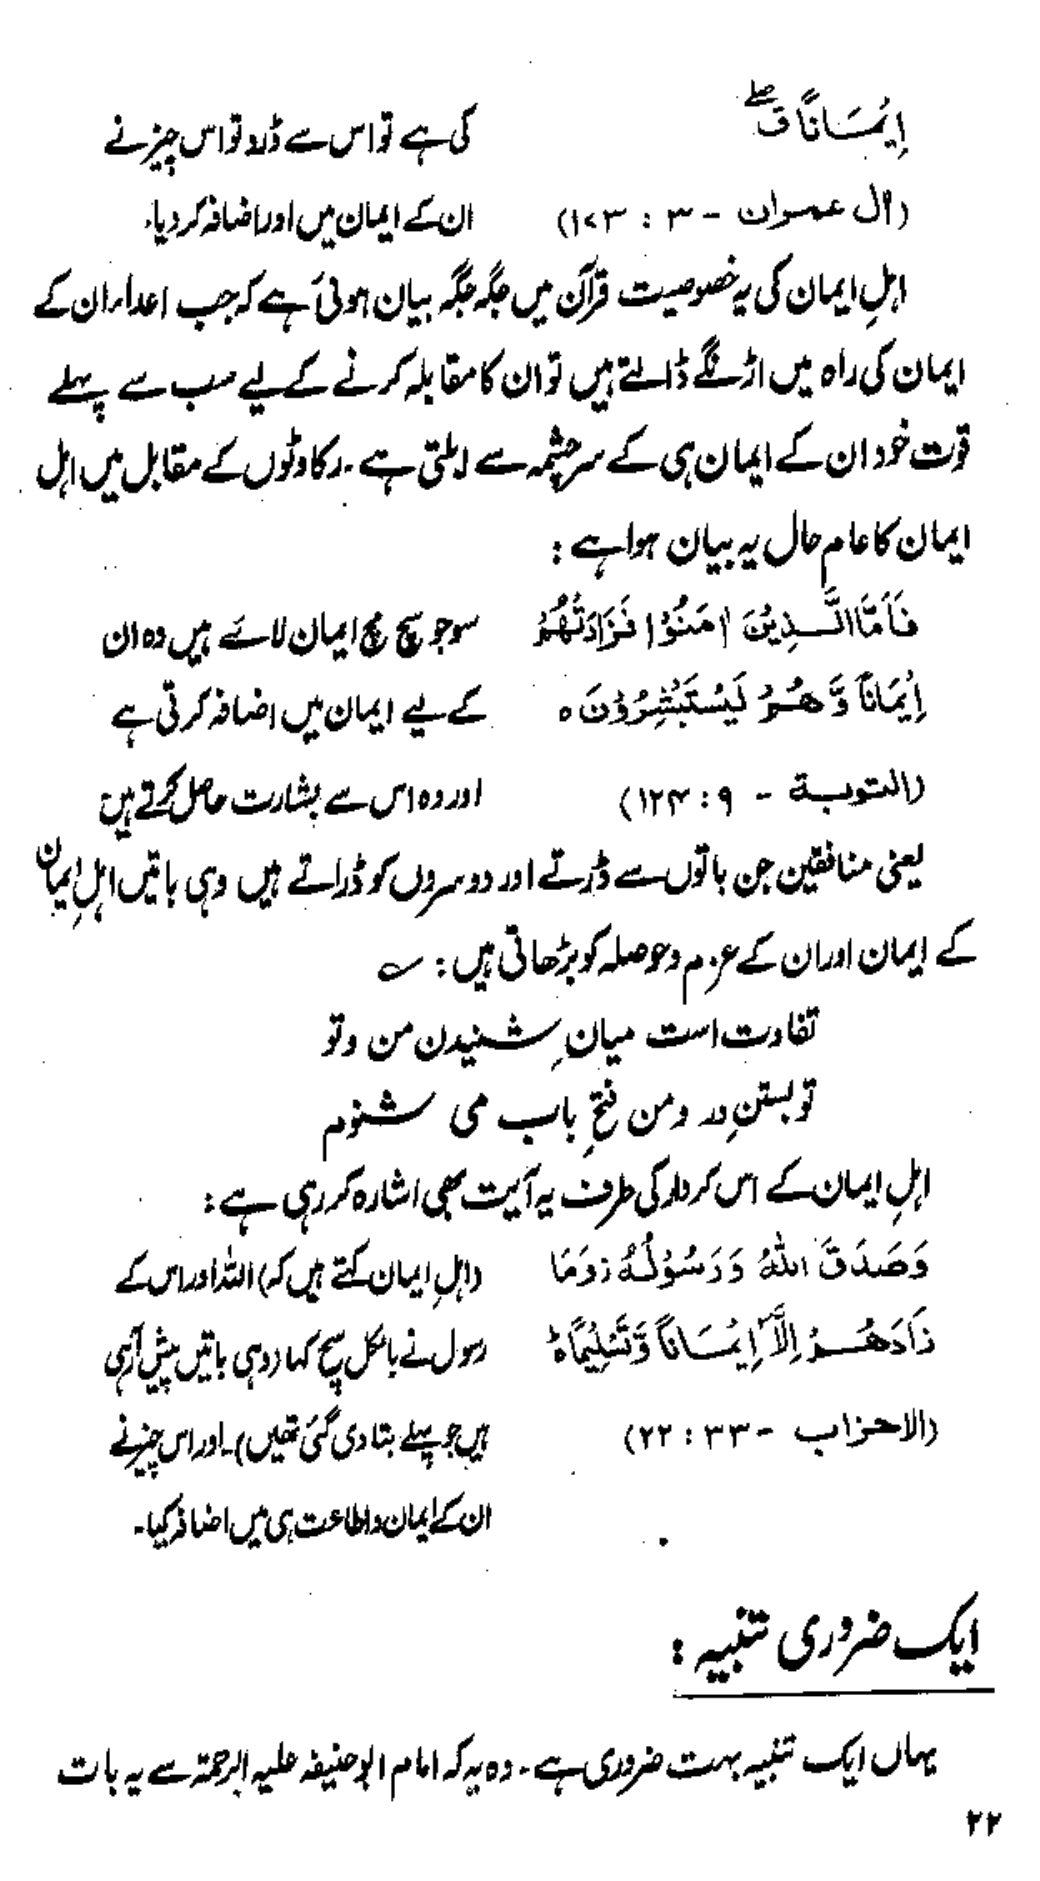 اِيْمَاناً ق صلے
کی ہے تو اس سے ڈرو تو اس چیز نے
(آل عمران - ۳ : ۱۷۳)
ان کے ایمان میں اور اضافہ کر دیا۔
اہلِ ایمان کی یہ خصوصیت قرآن میں جگہ جگہ بیان ہوئی ہے کہ جب اعداء ان کے
ایمان کی راہ میں اڑنگے ڈالتے ہیں تو ان کا مقابلہ کرنے کے لیے سب سے پہلے
قوت خود ان کے ایمان ہی کے سرچشمہ سے ابلتی ہے۔ رکاوٹوں کے مقابل میں اہل
ایمان کا عام حال یہ بیان ہوا ہے :
فَاَمَّا الَّذِيْنَ اٰمَنُوْا فَزَادَتْهُمْ
سو جو سچ مچ ایمان لائے ہیں وہ ان
اِيْمَاناً وَّهُمْ يَسْتَبْشِرُوْنَ ه
کے لیے ایمان میں اضافہ کرتی ہے
(التوبة - ۹ : ۱۲۴)
اور وہ اس سے بشارت حاصل کرتے ہیں
یعنی منافقین جن باتوں سے ڈرتے اور دوسروں کو ڈراتے ہیں وہی باتیں اہلِ ایمان
کے ایمان اور ان کے عزم و حوصلہ کو بڑھاتی ہیں : ؎
تفاوت است میانِ شنیدن من و تو
تو بستنِ در و من فتحِ باب می شنوم
اہلِ ایمان کے اس کردار کی طرف یہ آیت بھی اشارہ کر رہی ہے :
وَصَدَقَ اللّٰهُ وَرَسُوْلُهٗ ز وَمَا
(اہلِ ایمان کہتے ہیں کہ) اللہ اور اس کے
زَادَهُمْ اِلَّآ اِيْمَاناً وَّتَسْلِيْماً ه ط
رسول نے بالکل سچ کہا (وہی باتیں پیش آرہی
(الاحزاب - ۳۳ : ۲۲)
ہیں جو پہلے بتا دی گئی تھیں)۔ اور اس چیز نے
ان کے ایمان و اطاعت ہی میں اضافہ کیا۔
ایک ضروری تنبیہ :
یہاں ایک تنبیہ بہت ضروری ہے۔ وہ یہ کہ امام ابو حنیفہ علیہ الرحمۃ سے یہ بات
۲۲